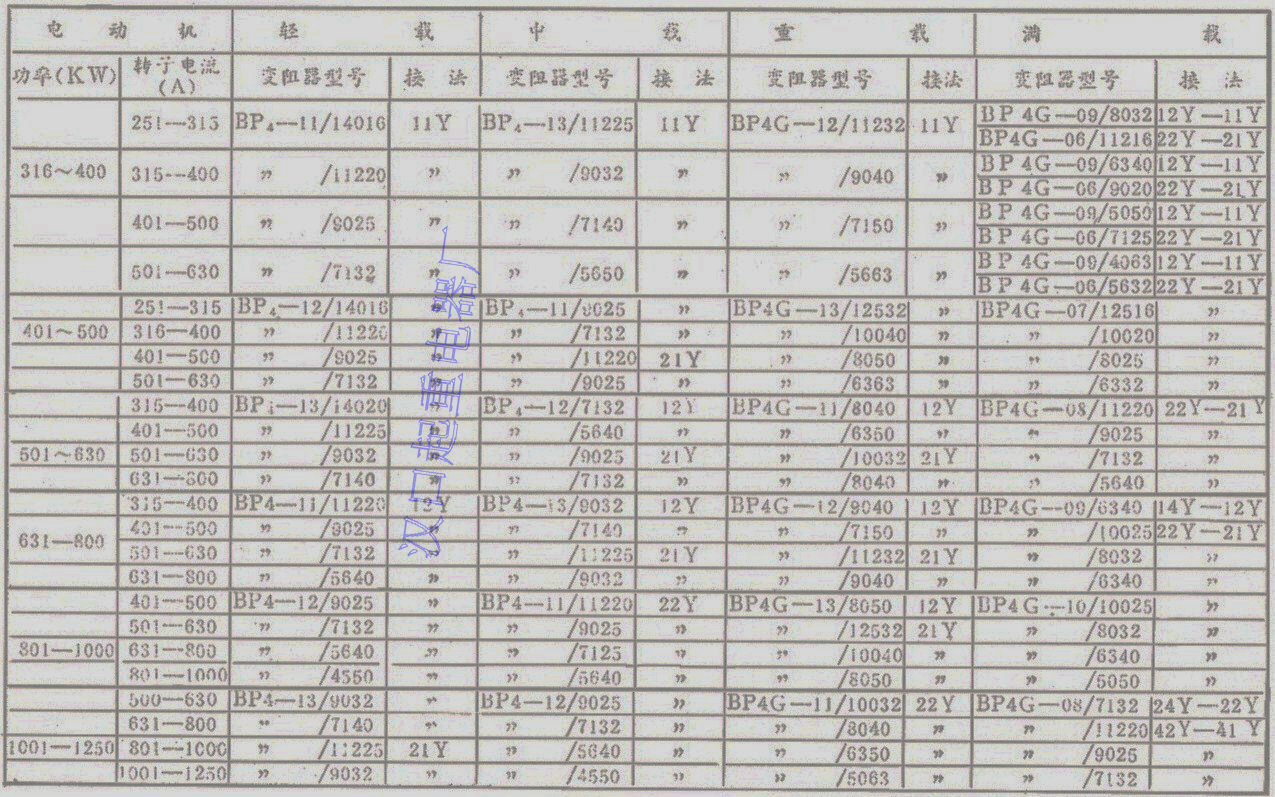 电 动 机 轻 载 中 载 重 载 满 载
功率(KW) 转子电流(A) 变阻器型号 接 法 变阻器型号 接 法 变阻器型号 接法 变阻器型号 接 法
251—315 BP₄—11/14016 11Y BP₄—13/11225 11Y BP4G—12/11232 11Y BP 4G—09/8032 12Y—11Y
BP4G—06/11216 22Y—21Y
316~400 315--400 〃 /11220 〃 〃 /9032 〃 〃 /9040 〃 BP 4G—09/6340 12Y—11Y
BP 4G—06/9020 22Y—21Y
401—500 〃 /9025 〃 〃 /7140 〃 〃 /7150 〃 BP 4G—09/5050 12Y—11Y
BP 4G—06/7125 22Y—21Y
501—630 〃 /7132 〃 〃 /5650 〃 〃 /5663 〃 BP 4G—09/4063 12Y—11Y
BP 4G—06/5632 22Y—21Y
251—315 BP₄—12/14016 〃 BP₄—11/9025 〃 BP4G—13/12532 〃 BP4G—07/12516 〃
401~500 316—400 〃 /11220 〃 〃 /7132 〃 〃 /10040 〃 〃 /10020 〃
401—500 〃 /9025 〃 〃 /11220 21Y 〃 /8050 〃 〃 /8025 〃
501—630 〃 /7132 〃 〃 /9025 〃 〃 /6363 〃 〃 /6332 〃
315—400 BP₄—13/14020 〃 BP₄—12/7132 12Y BP4G—11/8040 12Y BP4G—08/11220 22Y—21Y
401—500 〃 /11225 〃 〃 /5640 〃 〃 /6350 〃 〃 /9025 〃
501~630 501—630 〃 /9032 〃 〃 /9025 21Y 〃 /10032 21Y 〃 /7132 〃
631—800 〃 /7140 〃 〃 /7132 〃 〃 /8040 〃 〃 /5640 〃
315—400 BP4—11/11220 12Y BP4—13/9032 12Y BP4G—12/9040 12Y BP4G—09/6340 14Y—12Y
401—500 〃 /9025 〃 〃 /7140 〃 〃 /7150 〃 〃 /10025 22Y—21Y
631—800 501—630 〃 /7132 〃 〃 /11225 21Y 〃 /11232 21Y 〃 /8032 〃
631—800 〃 /5640 〃 〃 /9032 〃 〃 /9040 〃 〃 /6340 〃
401—500 BP4—12/9025 〃 BP4—11/11220 22Y BP4G—13/8050 12Y BP4G—10/10025 〃
501—630 〃 /7132 〃 〃 /9025 〃 〃 /12532 21Y 〃 /8032 〃
801—1000 631—800 〃 /5640 〃 〃 /7125 〃 〃 /10040 〃 〃 /6340 〃
801—1000 〃 /4550 〃 〃 /5640 〃 〃 /8050 〃 〃 /5050 〃
500—630 BP4—13/9032 〃 BP4—12/9025 〃 BP4G—11/10032 22Y BP4G—08/7132 24Y—22Y
631—800 〃 /7140 〃 〃 /7132 〃 〃 /8040 〃 〃 /11220 42Y—41Y
1001—1250 801—1000 〃 /11225 21Y 〃 /5640 〃 〃 /6350 〃 〃 /9025 〃
1001—1250 〃 /9032 〃 〃 /4550 〃 〃 /5063 〃 〃 /7132 〃
汉口起重电器厂